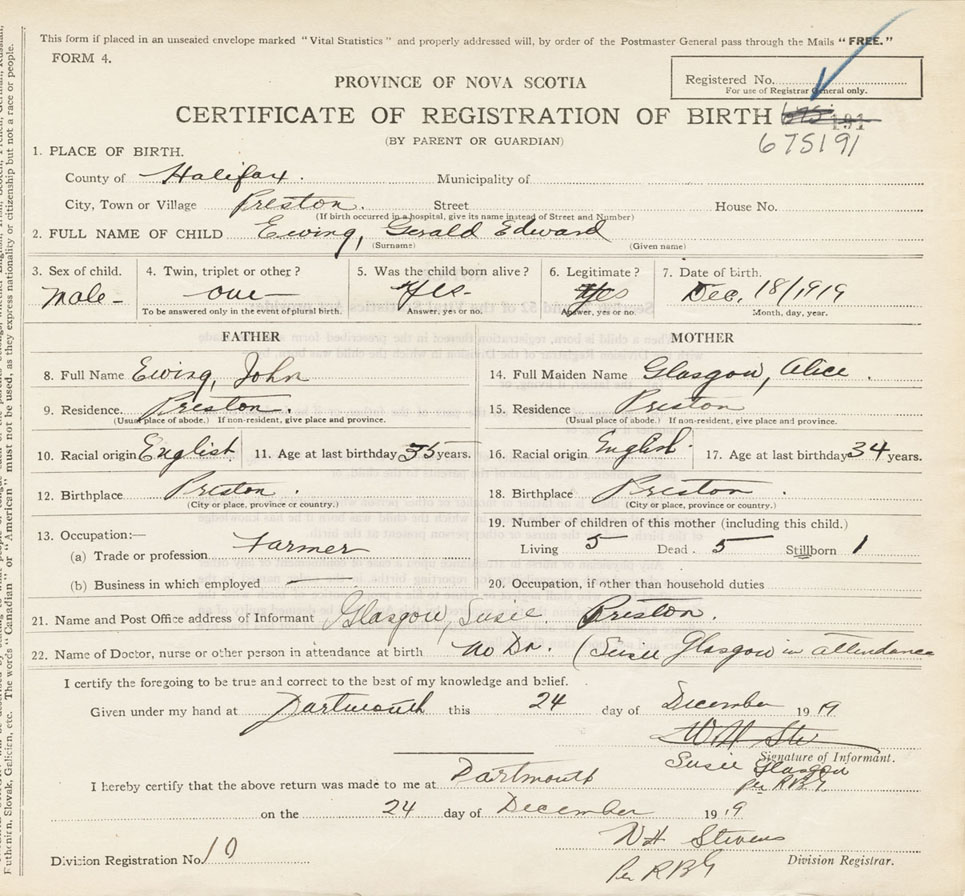 This form if placed in an unsealed envelope marked "Vital Statistics" and properly addressed will, by order of the Postmaster General pass through the Mails "FREE."
FORM 4.
Registered No.
For use of Registrar General only.
PROVINCE OF NOVA SCOTIA
CERTIFICATE OF REGISTRATION OF BIRTH 675 191
(BY PARENT OR GUARDIAN) 675191
1. PLACE OF BIRTH.
County of Halifax. Municipality of
City, Town or Village Preston. Street House No.
(If birth occurred in a hospital, give its name instead of Street and Number)
2. FULL NAME OF CHILD Ewing, Gerald Edward
(Surname) (Given name)
3. Sex of child. 4. Twin, triplet or other? 5. Was the child born alive? 6. Legitimate? 7. Date of birth.
Male - one Yes. Yes Dec. 18/1919
To be answered only in the event of plural birth. Answer, yes or no. Answer, yes or no. Month, day, year.
FATHER MOTHER
8. Full Name Ewing, John 14. Full Maiden Name Glasgow, Alice.
9. Residence. Preston. 15. Residence Preston
(Usual place of abode.) If non-resident, give place and province. (Usual place of abode.) If non-resident, give place and province.
10. Racial origin English 11. Age at last birthday 35 years. 16. Racial origin English. 17. Age at last birthday 34 years.
12. Birthplace Preston. 18. Birthplace Preston.
(City or place, province or country.) (City or place, province or country.)
13. Occupation:— 19. Number of children of this mother (including this child.)
(a) Trade or profession Farmer Living 5 Dead 5 Stillborn 1
(b) Business in which employed — 20. Occupation, if other than household duties
21. Name and Post Office address of Informant Glasgow, Susie. Preston.
22. Name of Doctor, nurse or other person in attendance at birth no Dr. (Susie Glasgow in attendance
I certify the foregoing to be true and correct to the best of my knowledge and belief.
Given under my hand at Dartmouth this 24 day of December 1919
W H Ste
Signature of Informant.
Susie Glasgow
per RBG
I hereby certify that the above return was made to me at Dartmouth
on the 24 day of December 1919
W H Stevens
Division Registration No. 10 Division Registrar.
Per RBG